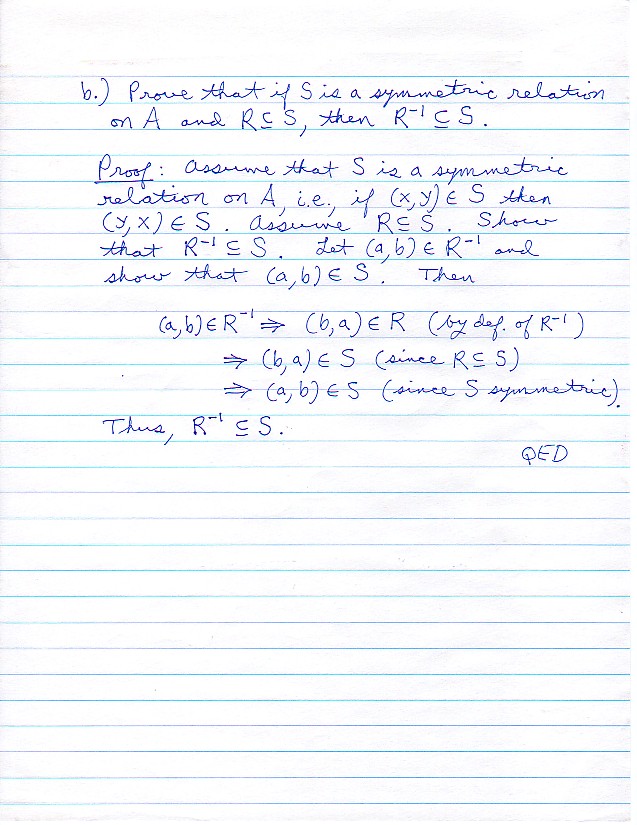 b.) Prove that if S is a symmetric relation
on A and R ⊆ S, then R⁻¹ ⊆ S.
Proof: Assume that S is a symmetric
relation on A, i.e., if (x,y) ∈ S then
(y,x) ∈ S. Assume R ⊆ S. Show
that R⁻¹ ⊆ S. Let (a,b) ∈ R⁻¹ and
show that (a,b) ∈ S. Then
(a,b) ∈ R⁻¹ ⇒ (b,a) ∈ R (by def. of R⁻¹)
⇒ (b,a) ∈ S (since R ⊆ S)
⇒ (a,b) ∈ S (since S symmetric).
Thus, R⁻¹ ⊆ S.
QED